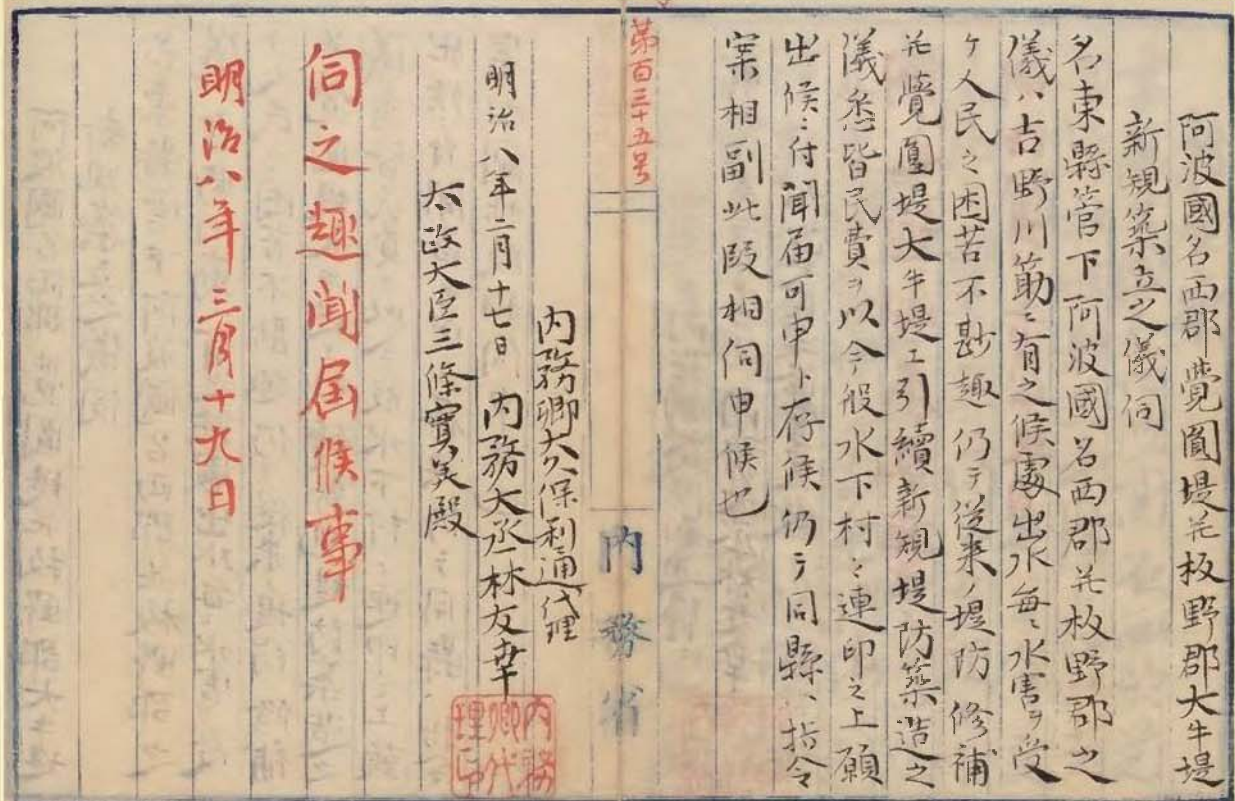 阿波國名西郡覺圓堤并板野郡大牛堤
新規築立之儀伺
名東縣管下阿波國名西郡并板野郡之
儀ハ吉野川筋ニ有之候處出水毎ニ水害ヲ受
ケ人民之困苦不尠趣仍テ従来ノ堤防修補
并覺圓堤大牛堤エ引續新規堤防築造之
儀悉皆民費ヲ以今般水下村々連印之上願
出候ニ付聞届可申ト存候仍テ同縣ヘ指令
案相副此段相伺申候也
第百三十五号
内務省
内務卿大久保利通代理
明治八年二月十七日 内務大丞林友幸
太政大臣三條實美殿
内務卿代理之印
伺之趣聞届候事
明治八年三月十九日